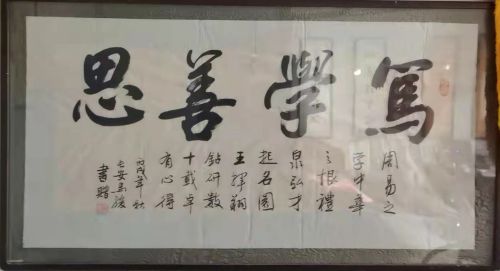 篤學善思
周易之
学中華
之根禮
泉弘才
起名園
王
鉆研數
十載卓
有心得
丙戌年秋
長安
書贈